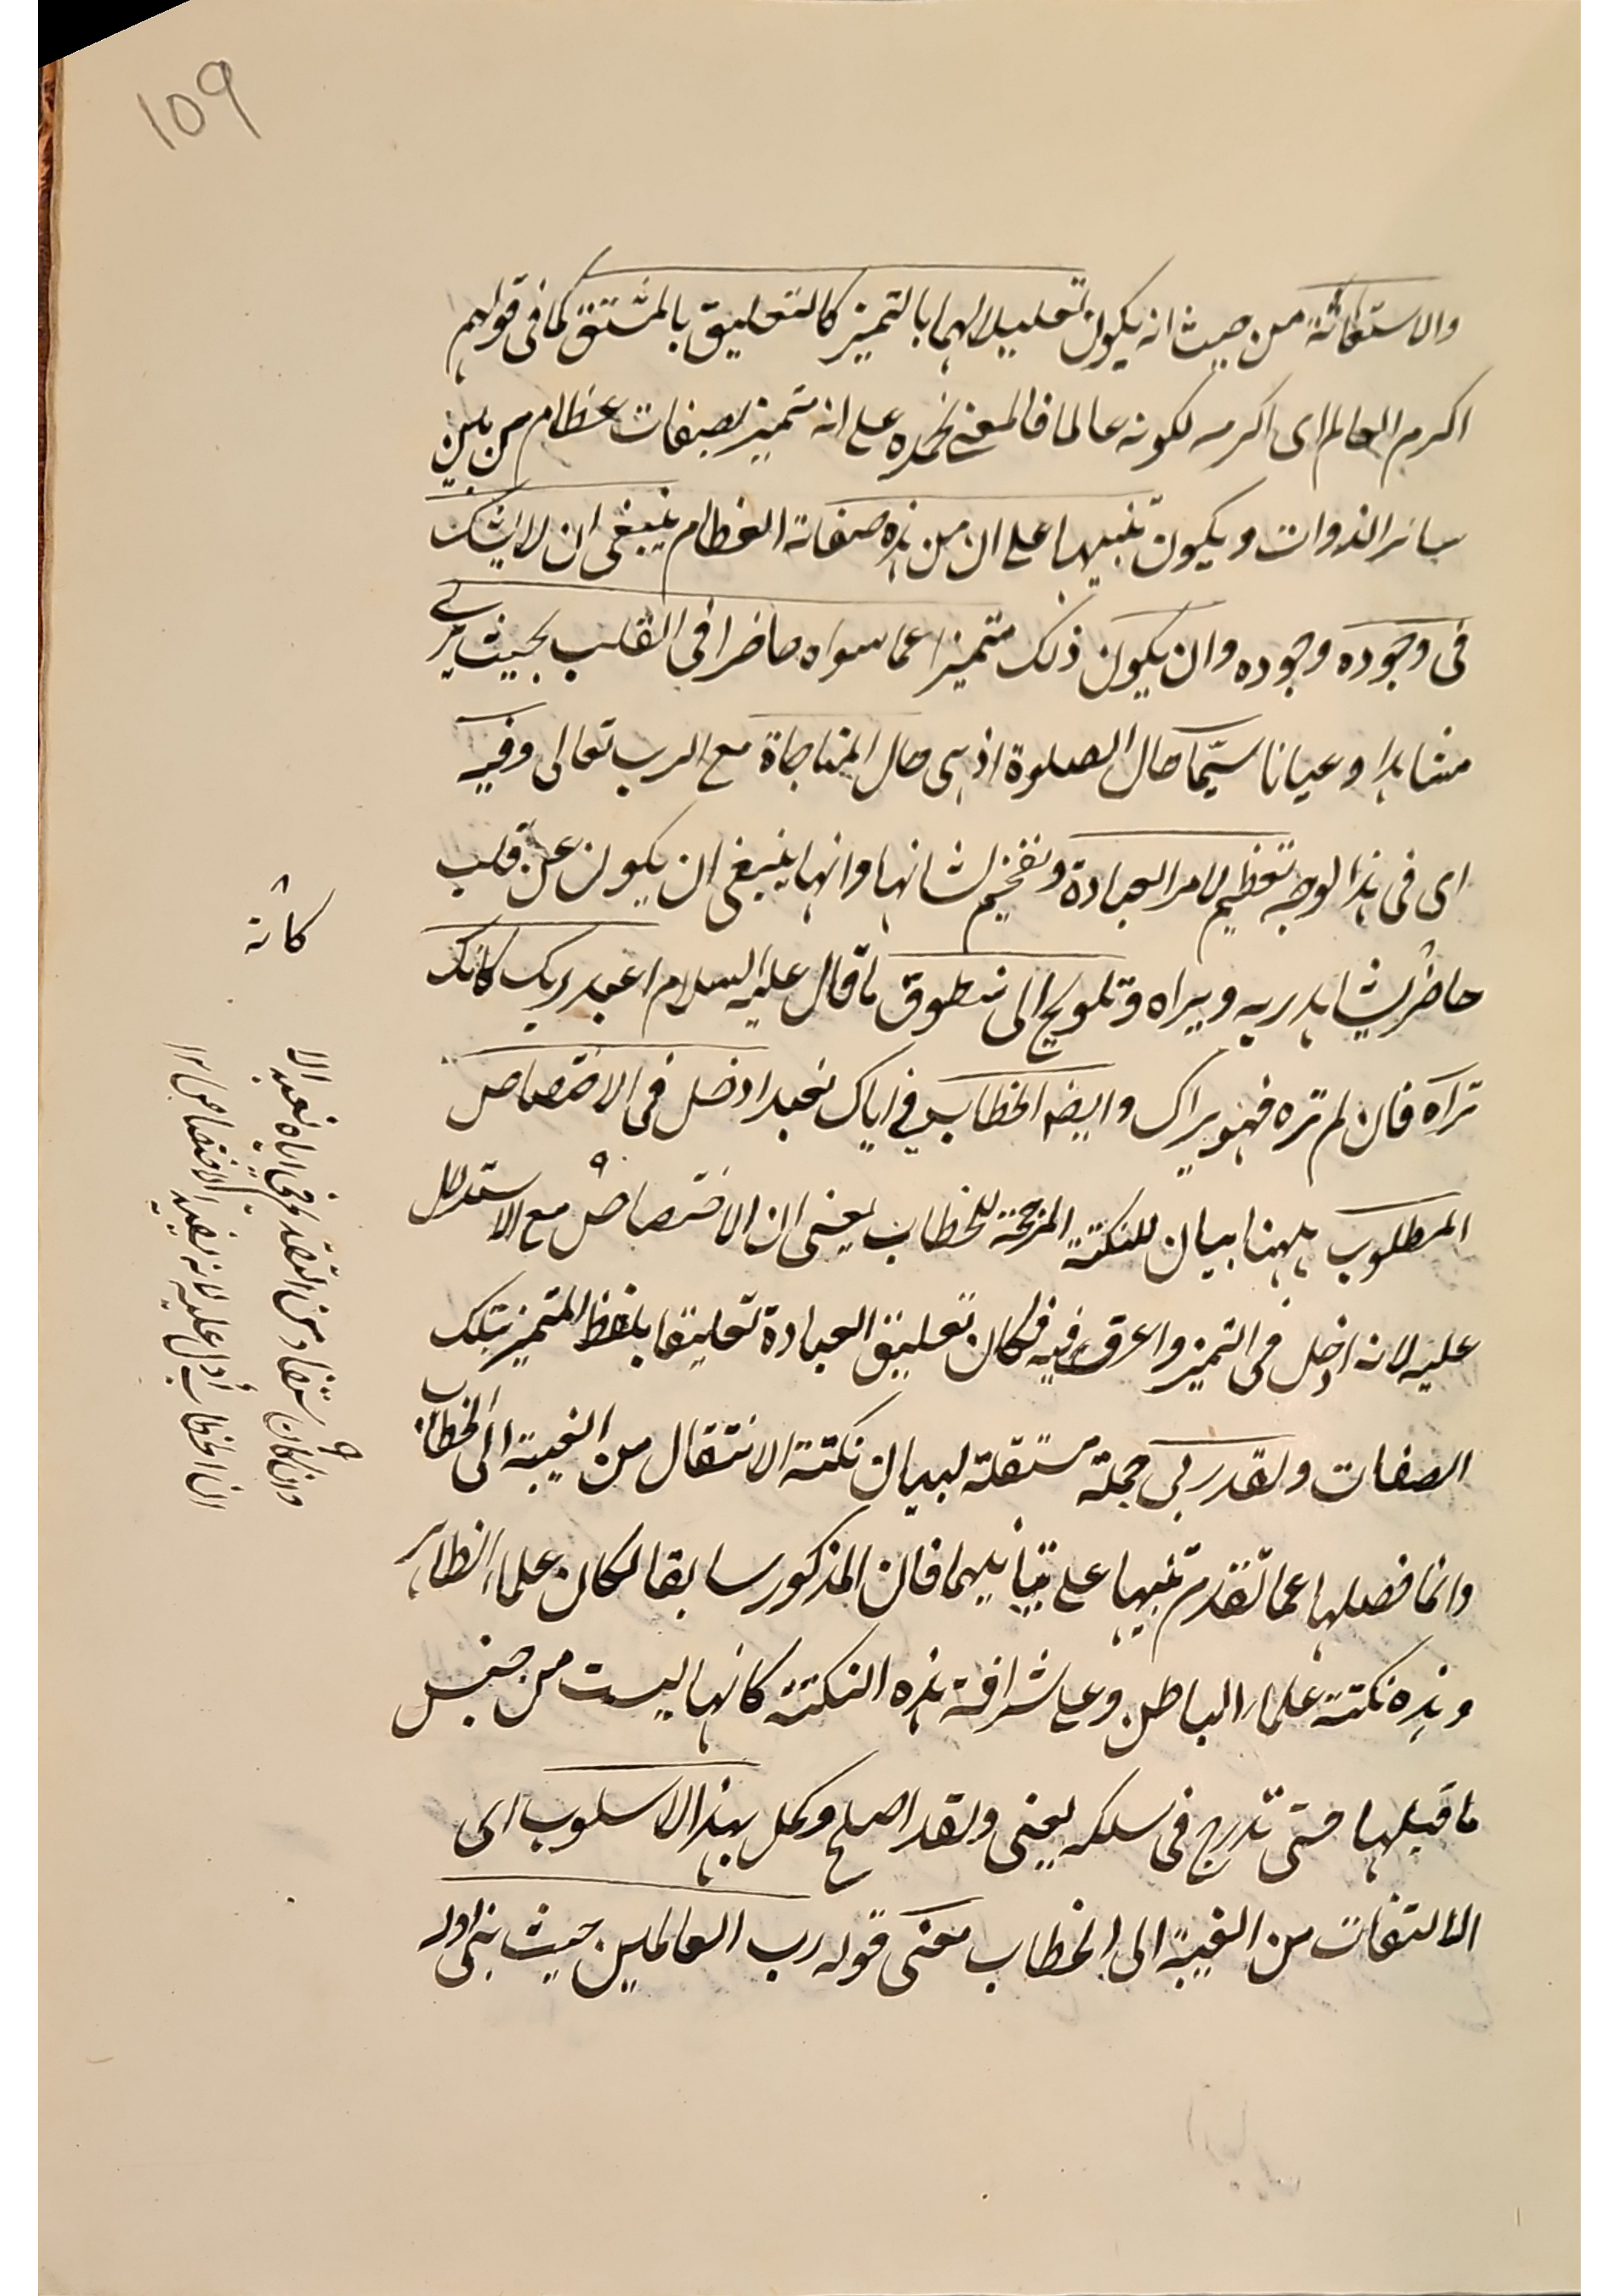 109
والاستعانة من حيث انه يكون تعليلا لهما بالتميز كالتعليق بالمشتق كما فى قولهم
اكرم العالم اى اكرمه لكونه عالما فالمعنى نحمده على انه متميز بصفات عظام من بين
سائر الذوات ويكون تنبيها على ان من هذه صفاته العظام ينبغى ان لا يشك
فى وجوده وجوده وان يكون ذلك متميزا عما سواه حاضرا فى القلب بحيث يرى
مشاهدا وعيانا سيّما حال الصلوة اذ هى حال المناجاة مع الرب تعالى وفيه
اى فى هذا الوجه تعظيم لامر العبادة وتفخيم لشانها وانها ينبغى ان يكون عن قلب
حاضر يشاهد ربه ويراه وتلويح الى منطوق ما قال عليه السلام اعبد ربك كانك
تراه فان لم تره فهو يراك وايضا الخطاب فى اياك نعبد ادخل فى الاختصاص
المطلوب ههنا بيان للنكتة المرجحة للخطاب يعنى ان الاختصاص مع الاستدلال
عليه لانه ادخل فى التميز واعرق فيه فكان تعليق العبادة تعليقا بلفظ المتميز بتلك
الصفات ولقد ربى جملة مستقلة لبيان نكتة الانتقال من الغيبة الى الخطاب
وانما فصلها عما تقدم تنبيها على تباينهما فان المذكور سابقا لكان علماء الظاهر
وهذه نكتة علماء الباطن وعلى شرافة هذه النكتة كانها ليست من جنس
ما قبلها حتى تدرج فى سلكه يعنى ولقد اصلح وكمل بهذا الاسلوب اى
الالتفات من الغيبة الى الخطاب معنى قوله رب العالمين حيث بنى اولا
كانه
وان كان مستفادا من التقديم فى اياه نعبد الا
ان الخطاب أدل عليه لانه يفيد الاختصاص